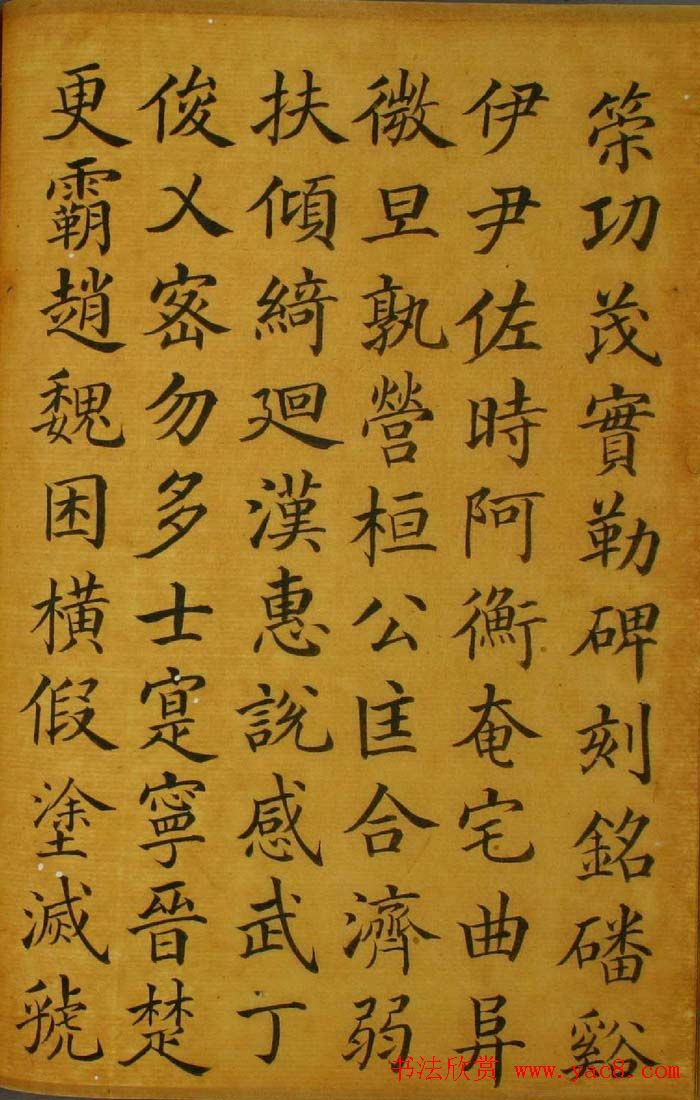 策功茂實勒碑刻銘磻谿
伊尹佐時阿衡奄宅曲阜
微旦孰營桓公匡合濟弱
扶傾綺迴漢惠說感武丁
俊乂密勿多士寔寧晉楚
更霸趙魏困橫假塗滅虢
书法欣赏 www.yac8.com